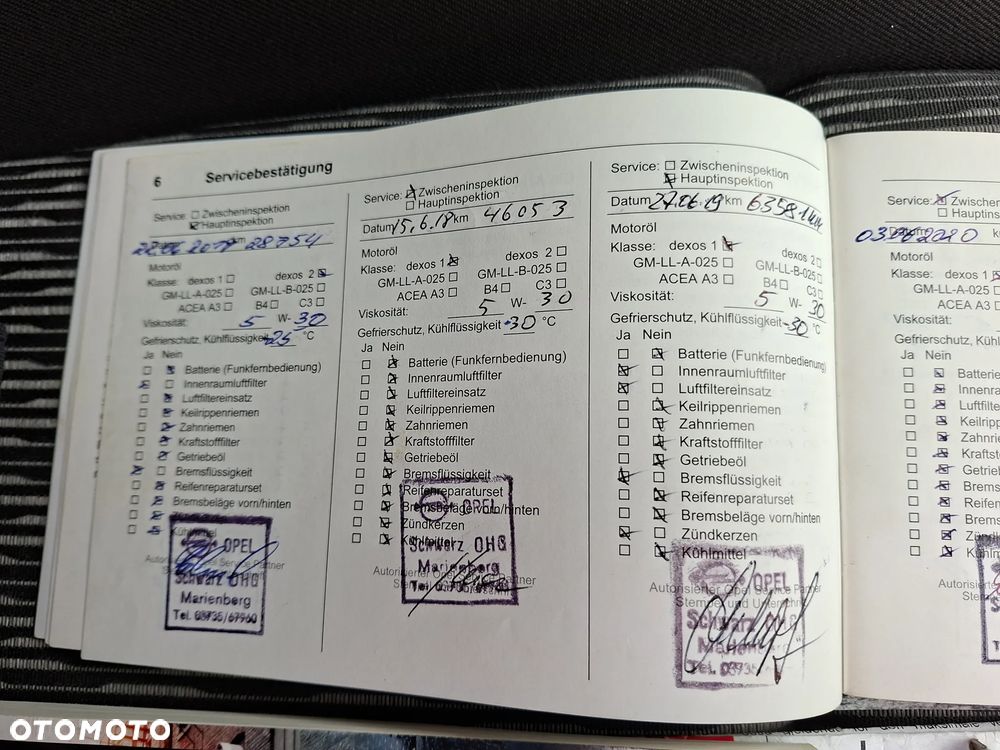 6 Servicebestätigung
Service: Zwischeninspektion
Hauptinspektion
28754
Motoröl
Klasse: dexos 1 dexos 2
GM-LL-A-025 GM-LL-B-025
ACEA A3 B4 C3
Viskosität: 5 W- 30
Gefrierschutz, Kühlflüssigkeit -25 °C
Ja Nein
Batterie (Funkfernbedienung)
Innenraumluftfilter
Luftfiltereinsatz
Keilrippenriemen
Zahnriemen
Kraftstofffilter
Getriebeöl
Bremsflüssigkeit
Reifenreparaturset
Bremsbeläge vorn/hinten
Kühlmittel
OPEL
Schwarz OHG
Marienberg
Tel. 03735/67960
Service: Zwischeninspektion
Hauptinspektion
Datum 15.6.18 km 46053
Motoröl
Klasse: dexos 1 dexos 2
GM-LL-A-025 GM-LL-B-025
ACEA A3 B4 C3
Viskosität: 5 W- 30
Gefrierschutz, Kühlflüssigkeit -30 °C
Ja Nein
Batterie (Funkfernbedienung)
Innenraumluftfilter
Luftfiltereinsatz
Keilrippenriemen
Zahnriemen
Kraftstofffilter
Getriebeöl
Bremsflüssigkeit
Reifenreparaturset
Bremsbeläge vorn/hinten
Zündkerzen
Kühlmittel
OPEL
Schwarz OHG
Marienberg
Service: Zwischeninspektion
Hauptinspektion
Datum 27.06.19 km 63581 km
Motoröl
Klasse: dexos 1 dexos 2
GM-LL-A-025 GM-LL-B-025
ACEA A3 B4 C3
Viskosität: 5 W- 30
Gefrierschutz, Kühlflüssigkeit -30 °C
Ja Nein
Batterie (Funkfernbedienung)
Innenraumluftfilter
Luftfiltereinsatz
Keilrippenriemen
Zahnriemen
Kraftstofffilter
Getriebeöl
Bremsflüssigkeit
Reifenreparaturset
Bremsbeläge vorn/hinten
Zündkerzen
Kühlmittel
Autorisierter Opel Service Partner
Stempel und Unterschrift
OPEL
Schwarz OHG
Service: Zwischeninspektion
Hauptinspektion
Motoröl
Klasse: dexos 1
GM-LL-A-025
ACEA A3
Viskosität:
Gefrierschutz, Kühlfl
Ja Nein
Batterie
Innenra
Luftfilte
Keilripp
Zahnri
Krafts
Getrieb
Brems
Reifen
Brems
Zündk
Kühlm
OTOMOTO